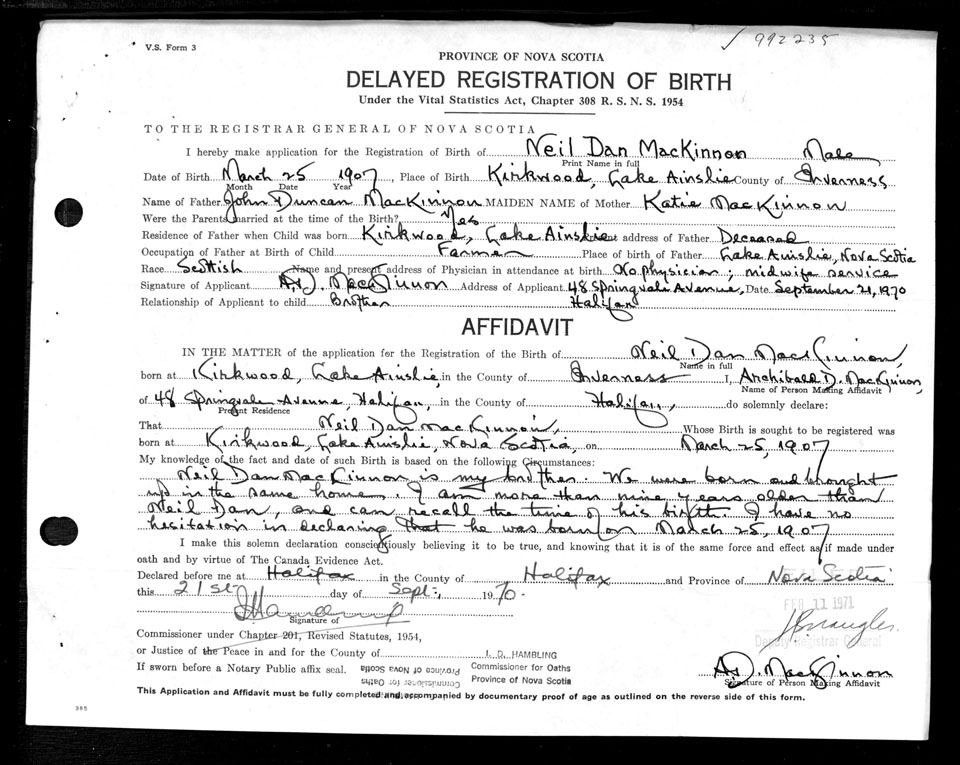 ✓ 992235
V.S. Form 3
PROVINCE OF NOVA SCOTIA
DELAYED REGISTRATION OF BIRTH
Under the Vital Statistics Act, Chapter 308 R. S. N. S. 1954
TO THE REGISTRAR GENERAL OF NOVA SCOTIA
I hereby make application for the Registration of Birth of Neil Dan MacKinnon Male
Print Name in full
Date of Birth March 25 1907, Place of Birth Kirkwood, Lake Ainslie County of Inverness
Month Date Year
Name of Father John Duncan MacKinnon MAIDEN NAME of Mother Katie MacKinnon
Were the Parents married at the time of the Birth? Yes
Residence of Father when Child was born Kirkwood, Lake Ainslie Present address of Father Deceased
Occupation of Father at Birth of Child Farmer Place of birth of Father Lake Ainslie, Nova Scotia
Race Scottish Name and present address of Physician in attendance at birth No physician; midwife service
Signature of Applicant A. D. MacKinnon Address of Applicant 48 Springvale Avenue, Date September 21, 1970
Relationship of Applicant to child Brother Halifax
AFFIDAVIT
IN THE MATTER of the application for the Registration of the Birth of Neil Dan MacKinnon,
Name in full
born at Kirkwood, Lake Ainslie, in the County of Inverness I, Archibald D. MacKinnon,
Name of Person Making Affidavit
of 48 Springvale Avenue, Halifax, in the County of Halifax, do solemnly declare:
Present Residence
That Neil Dan MacKinnon, Whose Birth is sought to be registered was
born at Kirkwood, Lake Ainslie, Nova Scotia, on March 25, 1907
My knowledge of the fact and date of such Birth is based on the following Circumstances:
Neil Dan MacKinnon is my brother. We were born and brought
up in the same home. I am more than nine years older than
Neil Dan, and can recall the time of his birth. I have no
hesitation in declaring that he was born on March 25, 1907
I make this solemn declaration conscientiously believing it to be true, and knowing that it is of the same force and effect as if made under
oath and by virtue of The Canada Evidence Act.
Declared before me at Halifax in the County of Halifax and Province of Nova Scotia
this 21st day of Sept., 1970.
FEB 11 1971
Signature of
Deputy Registrar General
Commissioner under Chapter 201, Revised Statutes, 1954,
or Justice of the Peace in and for the County of
I. D. HAMBLING
If sworn before a Notary Public affix seal.
Commissioner for Oaths
Province of Nova Scotia
Commissioner for Oaths
Province of Nova Scotia
A. D. MacKinnon
Signature of Person Making Affidavit
This Application and Affidavit must be fully completed and accompanied by documentary proof of age as outlined on the reverse side of this form.
385